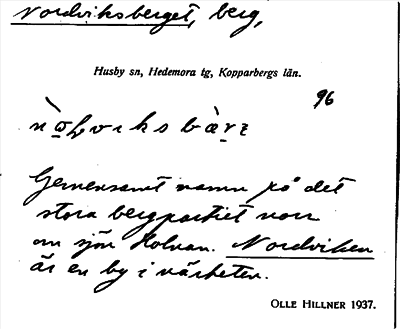 Nordviksberget, berg,
Husby sn, Hedemora tg, Kopparbergs län.
96
Gemensamt namn på det
stora bergpartiet norr
om sjön Holvan. Nordviken
är en by i närheten.
OLLE HILLNER 1937.